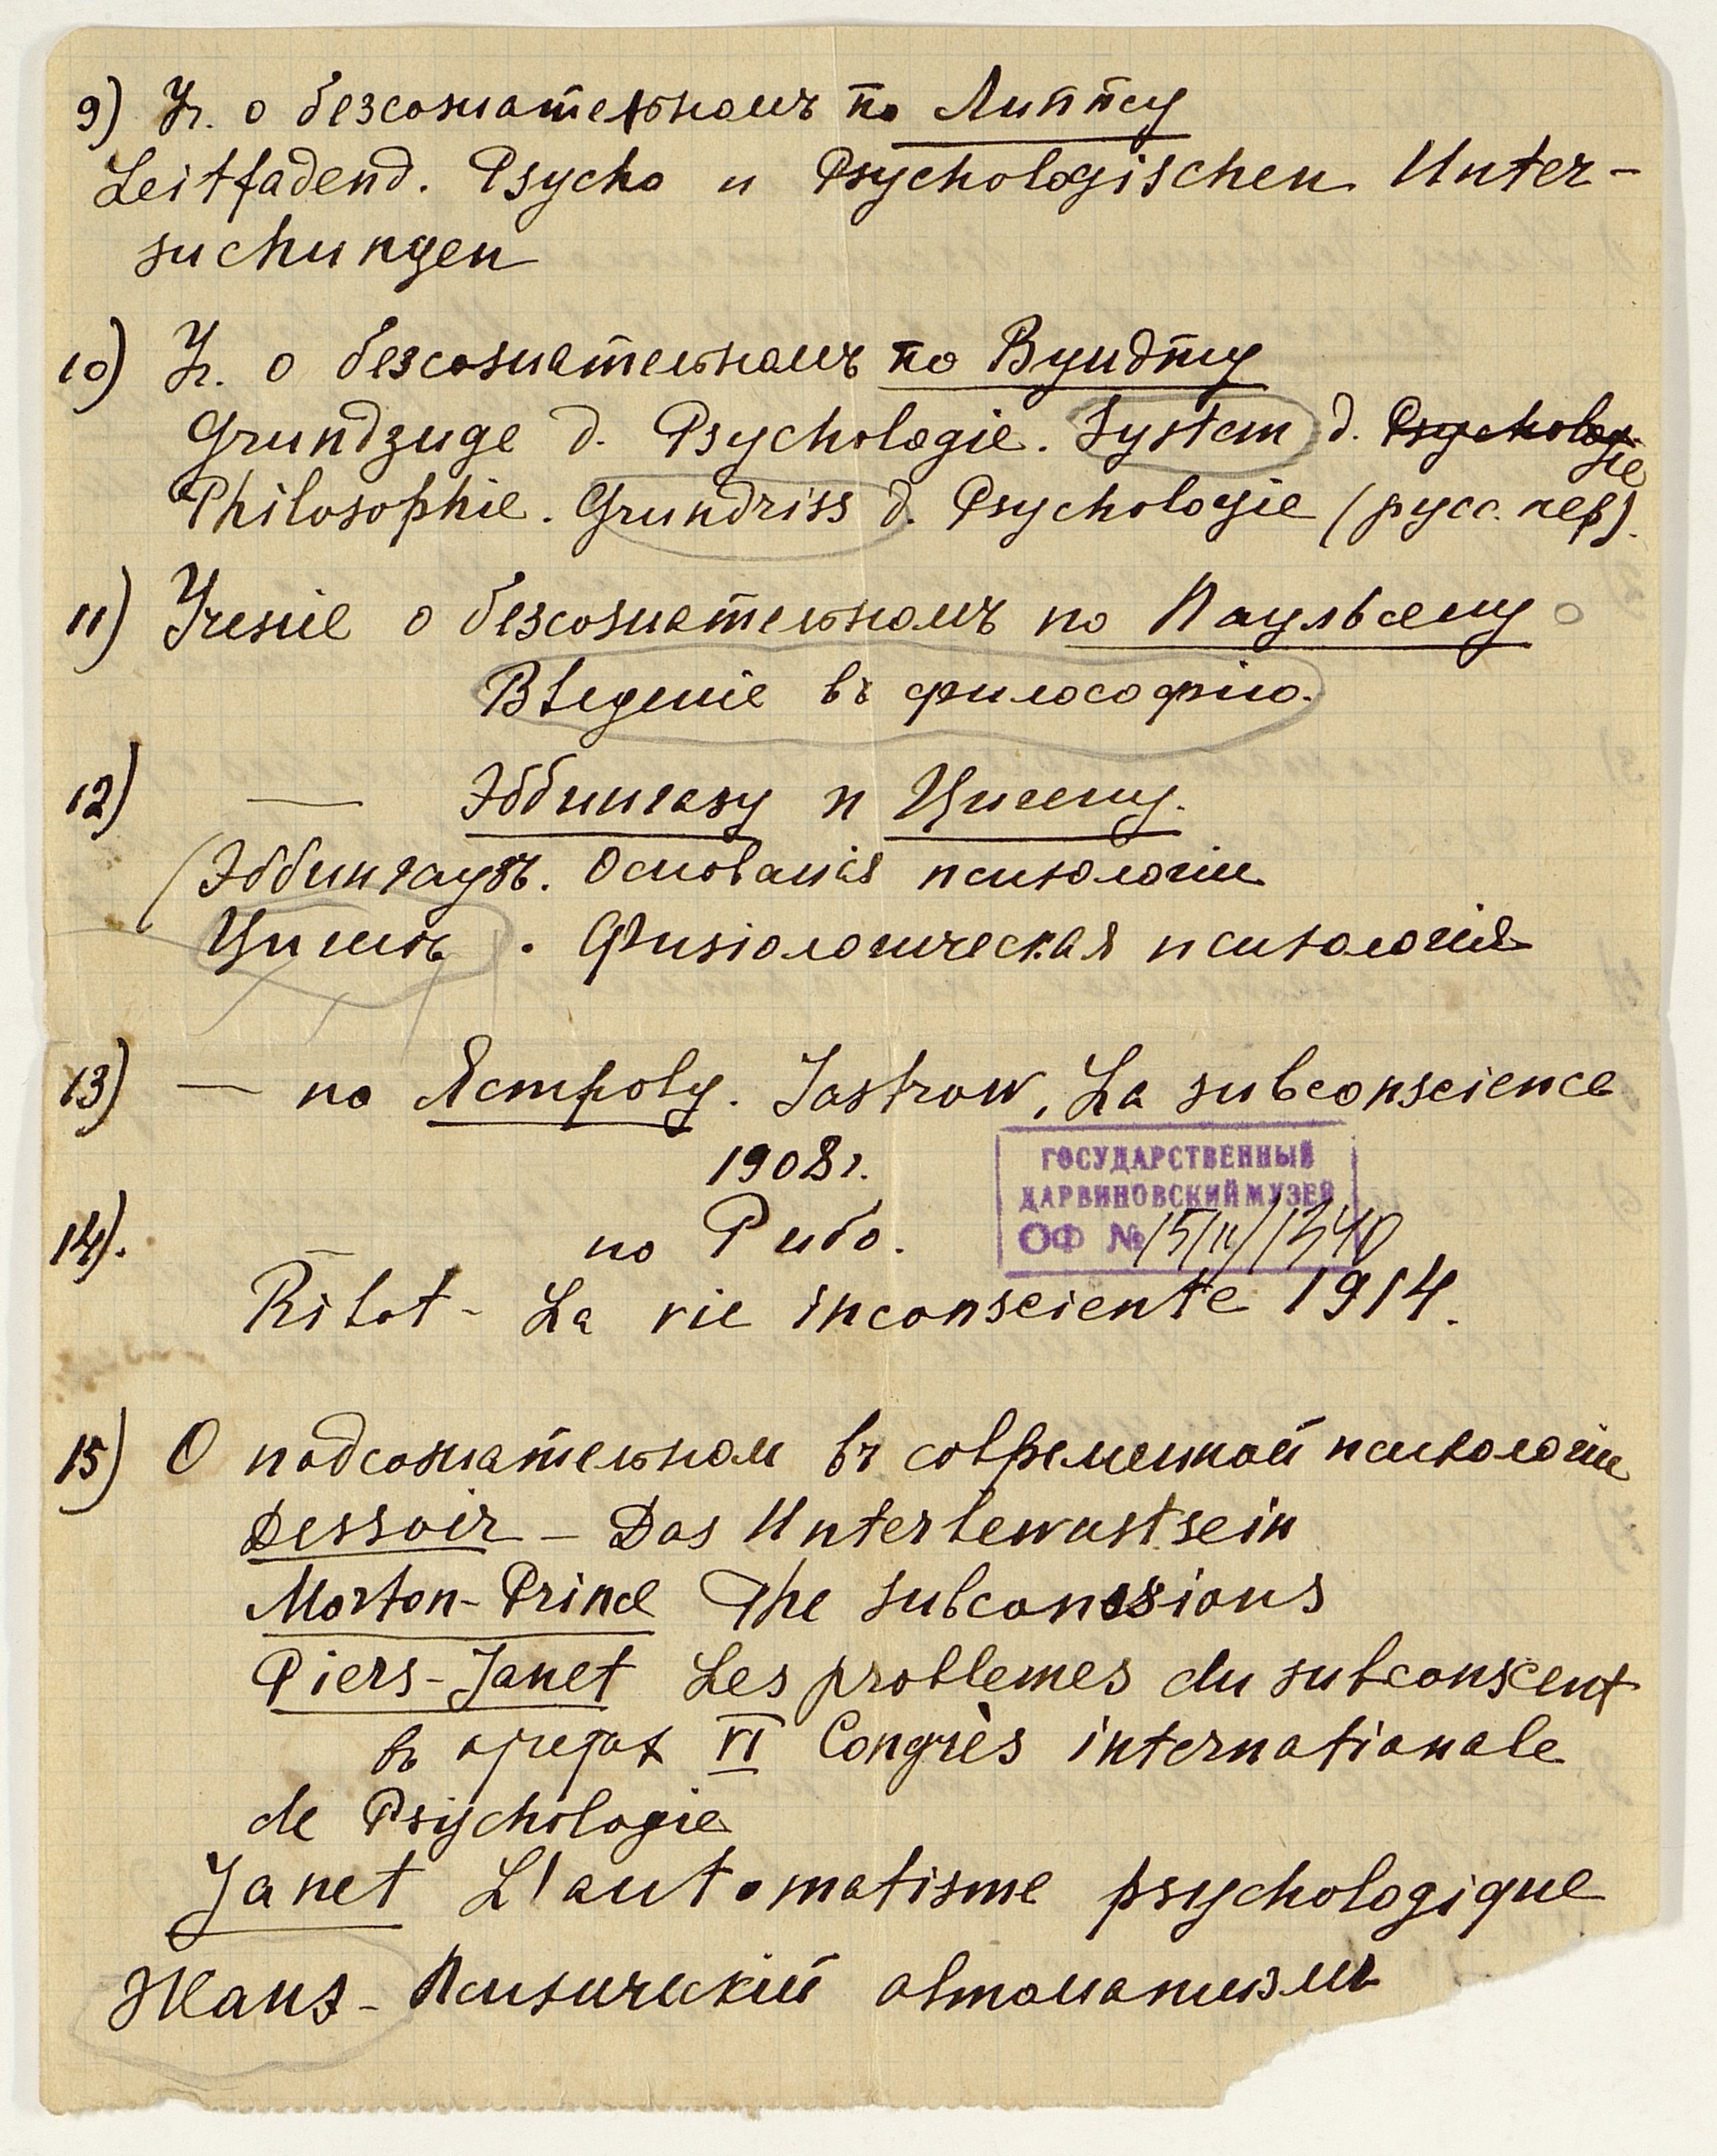 9) Уч. о безсознательномъ по Липпсу
Leitfaden d. Psycho и Psychologischen Unter-
suchungen
10) Уч. о безсознательномъ по Вундту
Grundzuge d. Psychologie. System d. Psychologie
Philosophie. Grundriss d. Psychologie (русс. пер).
11) Ученіе о безсознательномъ по Паульсену
Введеніе въ философію.
12) — Эббингаузу и Цигену.
(Эббингаузъ. Основанія психологіи
Цигенъ. Физіологическая психологія
13) — по Ястрову. Jastrow, La subconscience
1908 г.
ГОСУДАРСТВЕННЫЙ
ДАРВИНОВСКИЙ МУЗЕЙ
ОФ № 15111/1340
14). по Рибо.
Ribot - La vie inconsciente 1914.
15) О подсознательном въ современной психологіи
Dessoir - Das Unterbewustsein
Morton-Prince The subconssious
Piers-Janet Les problemes du subconscent
въ VI Congrès internationale
de Psychologie
Janet L'automatisme psychologique
Жанэ - Психическій автоматизмъ